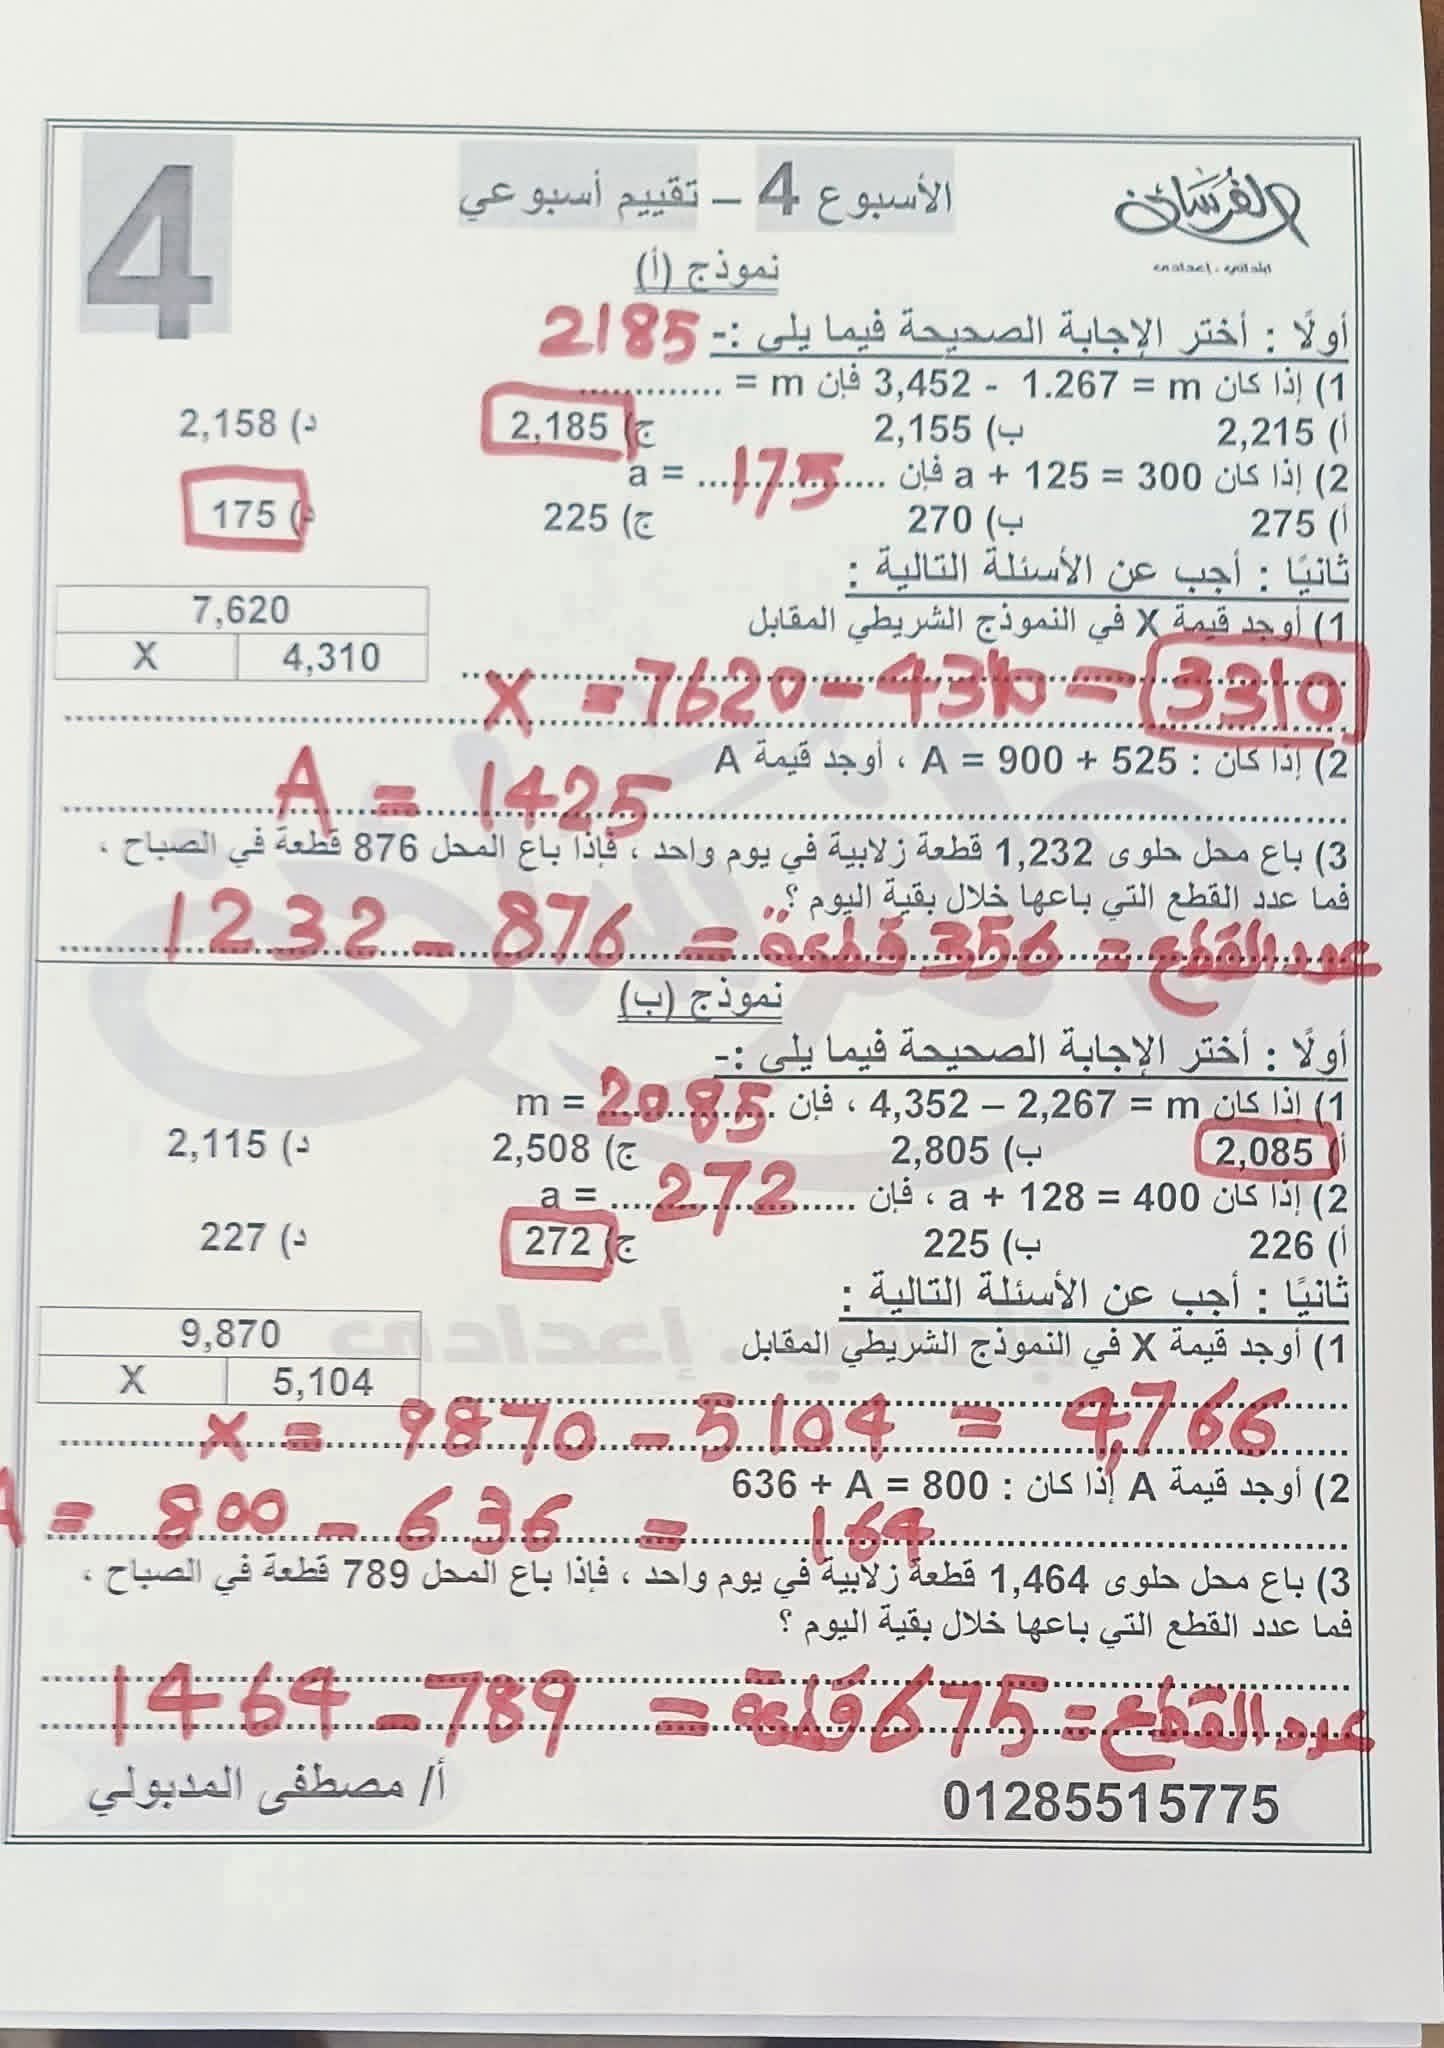 4
الفرسان
ابتدائي . إعدادي
الأسبوع 4 – تقييم أسبوعي
نموذج (أ)
أولًا : أختر الإجابة الصحيحة فيما يلي :- 2185
1) إذا كان 3,452 - 1.267 = m فإن m = .............
أ) 2,215 ب) 2,155 ج) 2,185 د) 2,158
2) إذا كان a + 125 = 300 فإن a = ......175......
أ) 275 ب) 270 ج) 225 د) 175
ثانيًا : أجب عن الأسئلة التالية :
1) أوجد قيمة X في النموذج الشريطي المقابل
7,620
X 4,310
X = 7620 - 4310 = 3310
2) إذا كان : A = 900 + 525 ، أوجد قيمة A
A = 1425
3) باع محل حلوى 1,232 قطعة زلابية في يوم واحد ، فإذا باع المحل 876 قطعة في الصباح ،
فما عدد القطع التي باعها خلال بقية اليوم ؟
عدد القطع = 1232 - 876 = 356 قطعة
نموذج (ب)
أولًا : أختر الإجابة الصحيحة فيما يلي :-
1) إذا كان 4,352 – 2,267 = m ، فإن m = 2085
أ) 2,085 ب) 2,805 ج) 2,508 د) 2,115
2) إذا كان a + 128 = 400 ، فإن a = ....272....
أ) 226 ب) 225 ج) 272 د) 227
ثانيًا : أجب عن الأسئلة التالية :
1) أوجد قيمة X في النموذج الشريطي المقابل
9,870
X 5,104
X = 9870 - 5104 = 4,766
2) أوجد قيمة A إذا كان : 636 + A = 800
A = 800 - 636 = 164
3) باع محل حلوى 1,464 قطعة زلابية في يوم واحد ، فإذا باع المحل 789 قطعة في الصباح ،
فما عدد القطع التي باعها خلال بقية اليوم ؟
عدد القطع = 1464 - 789 = 675 قطعة
01285515775 أ/ مصطفى المدبولي